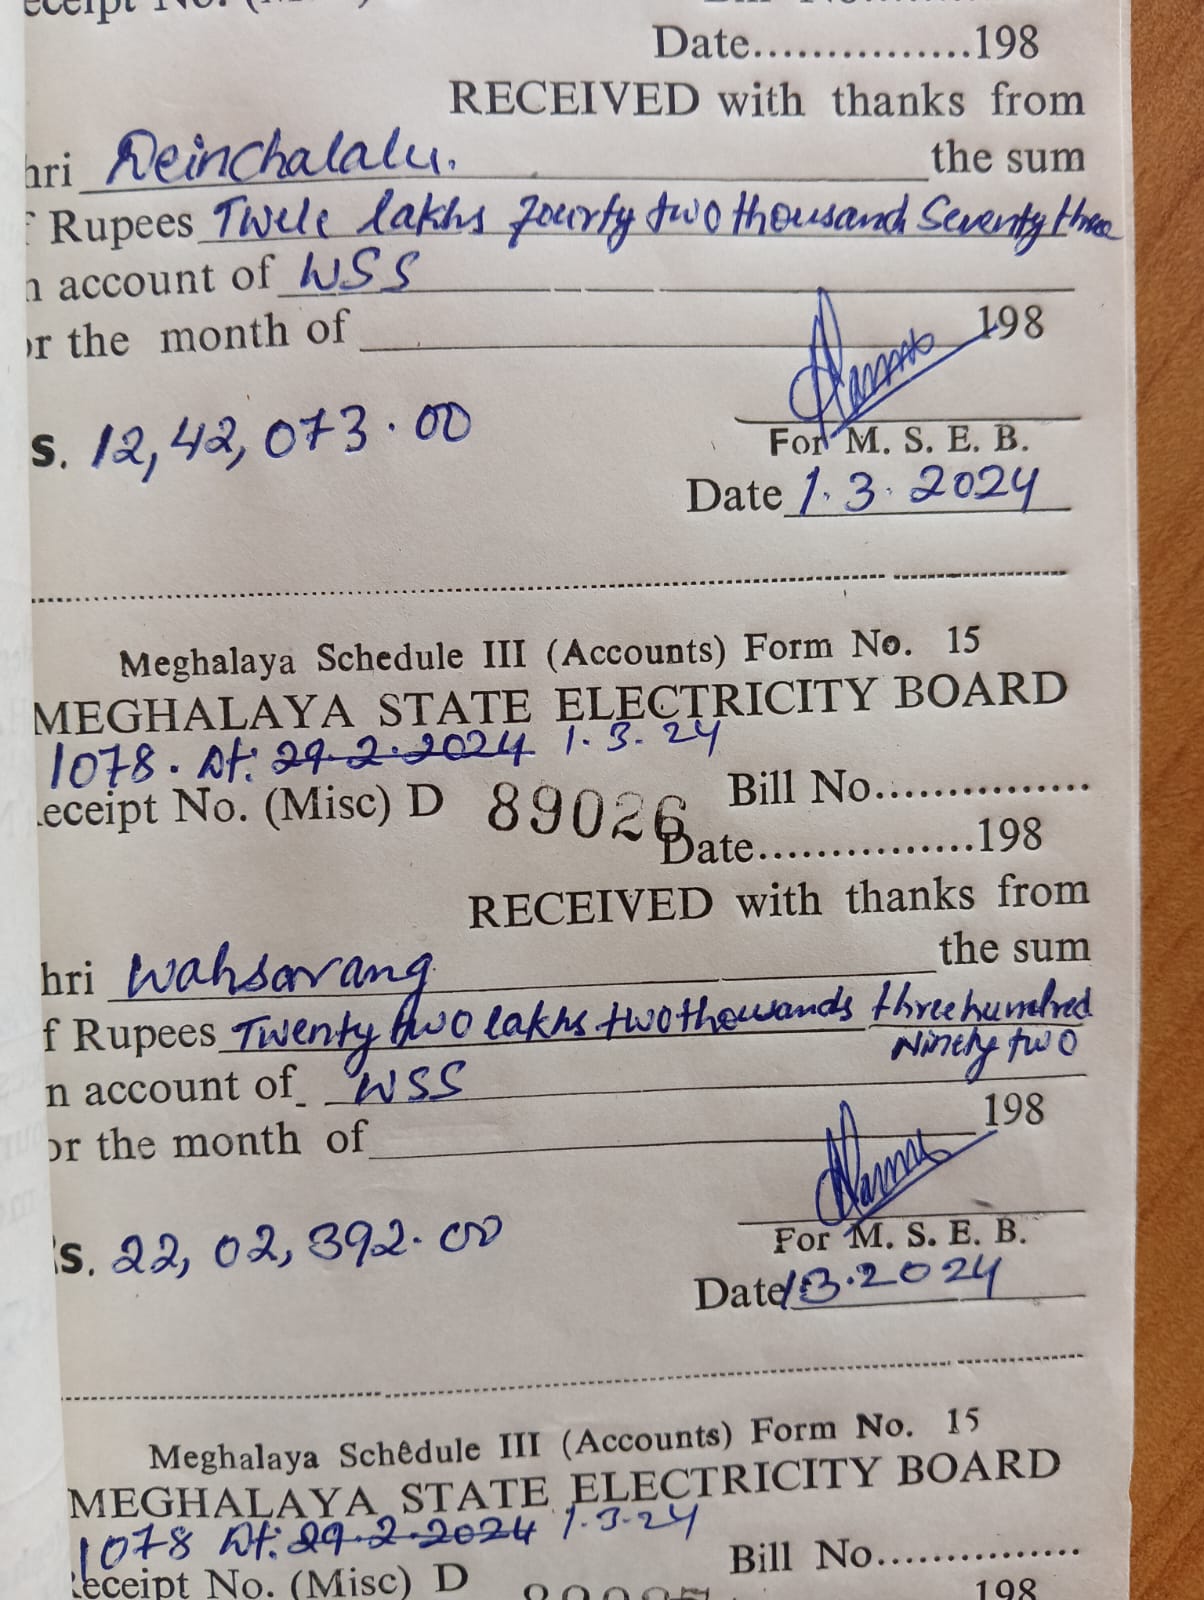 eceipt No. (M
Bill No
Date...............198
RECEIVED with thanks from
hri Deinchalalu. the sum
f Rupees Twele lakhs fourty two thousand Seventy three
n account of WSS
or the month of 198
s. 12,42,073.00
For M. S. E. B.
Date 1.3.2024
Meghalaya Schedule III (Accounts) Form No. 15
MEGHALAYA STATE ELECTRICITY BOARD
1078. Dt: 29.2.2024 1.3.24
eceipt No. (Misc) D 89026 Bill No...............
Date...............198
RECEIVED with thanks from
hri Wahsarang the sum
f Rupees Twenty two lakhs two thousands three hundred
Ninety two
n account of WSS
or the month of 198
s. 22,02,392.00
For M. S. E. B.
Date 1.3.2024
Meghalaya Schedule III (Accounts) Form No. 15
MEGHALAYA STATE ELECTRICITY BOARD
1078 Dt: 29.2.2024 1.3.24
eceipt No. (Misc) D Bill No...............
198